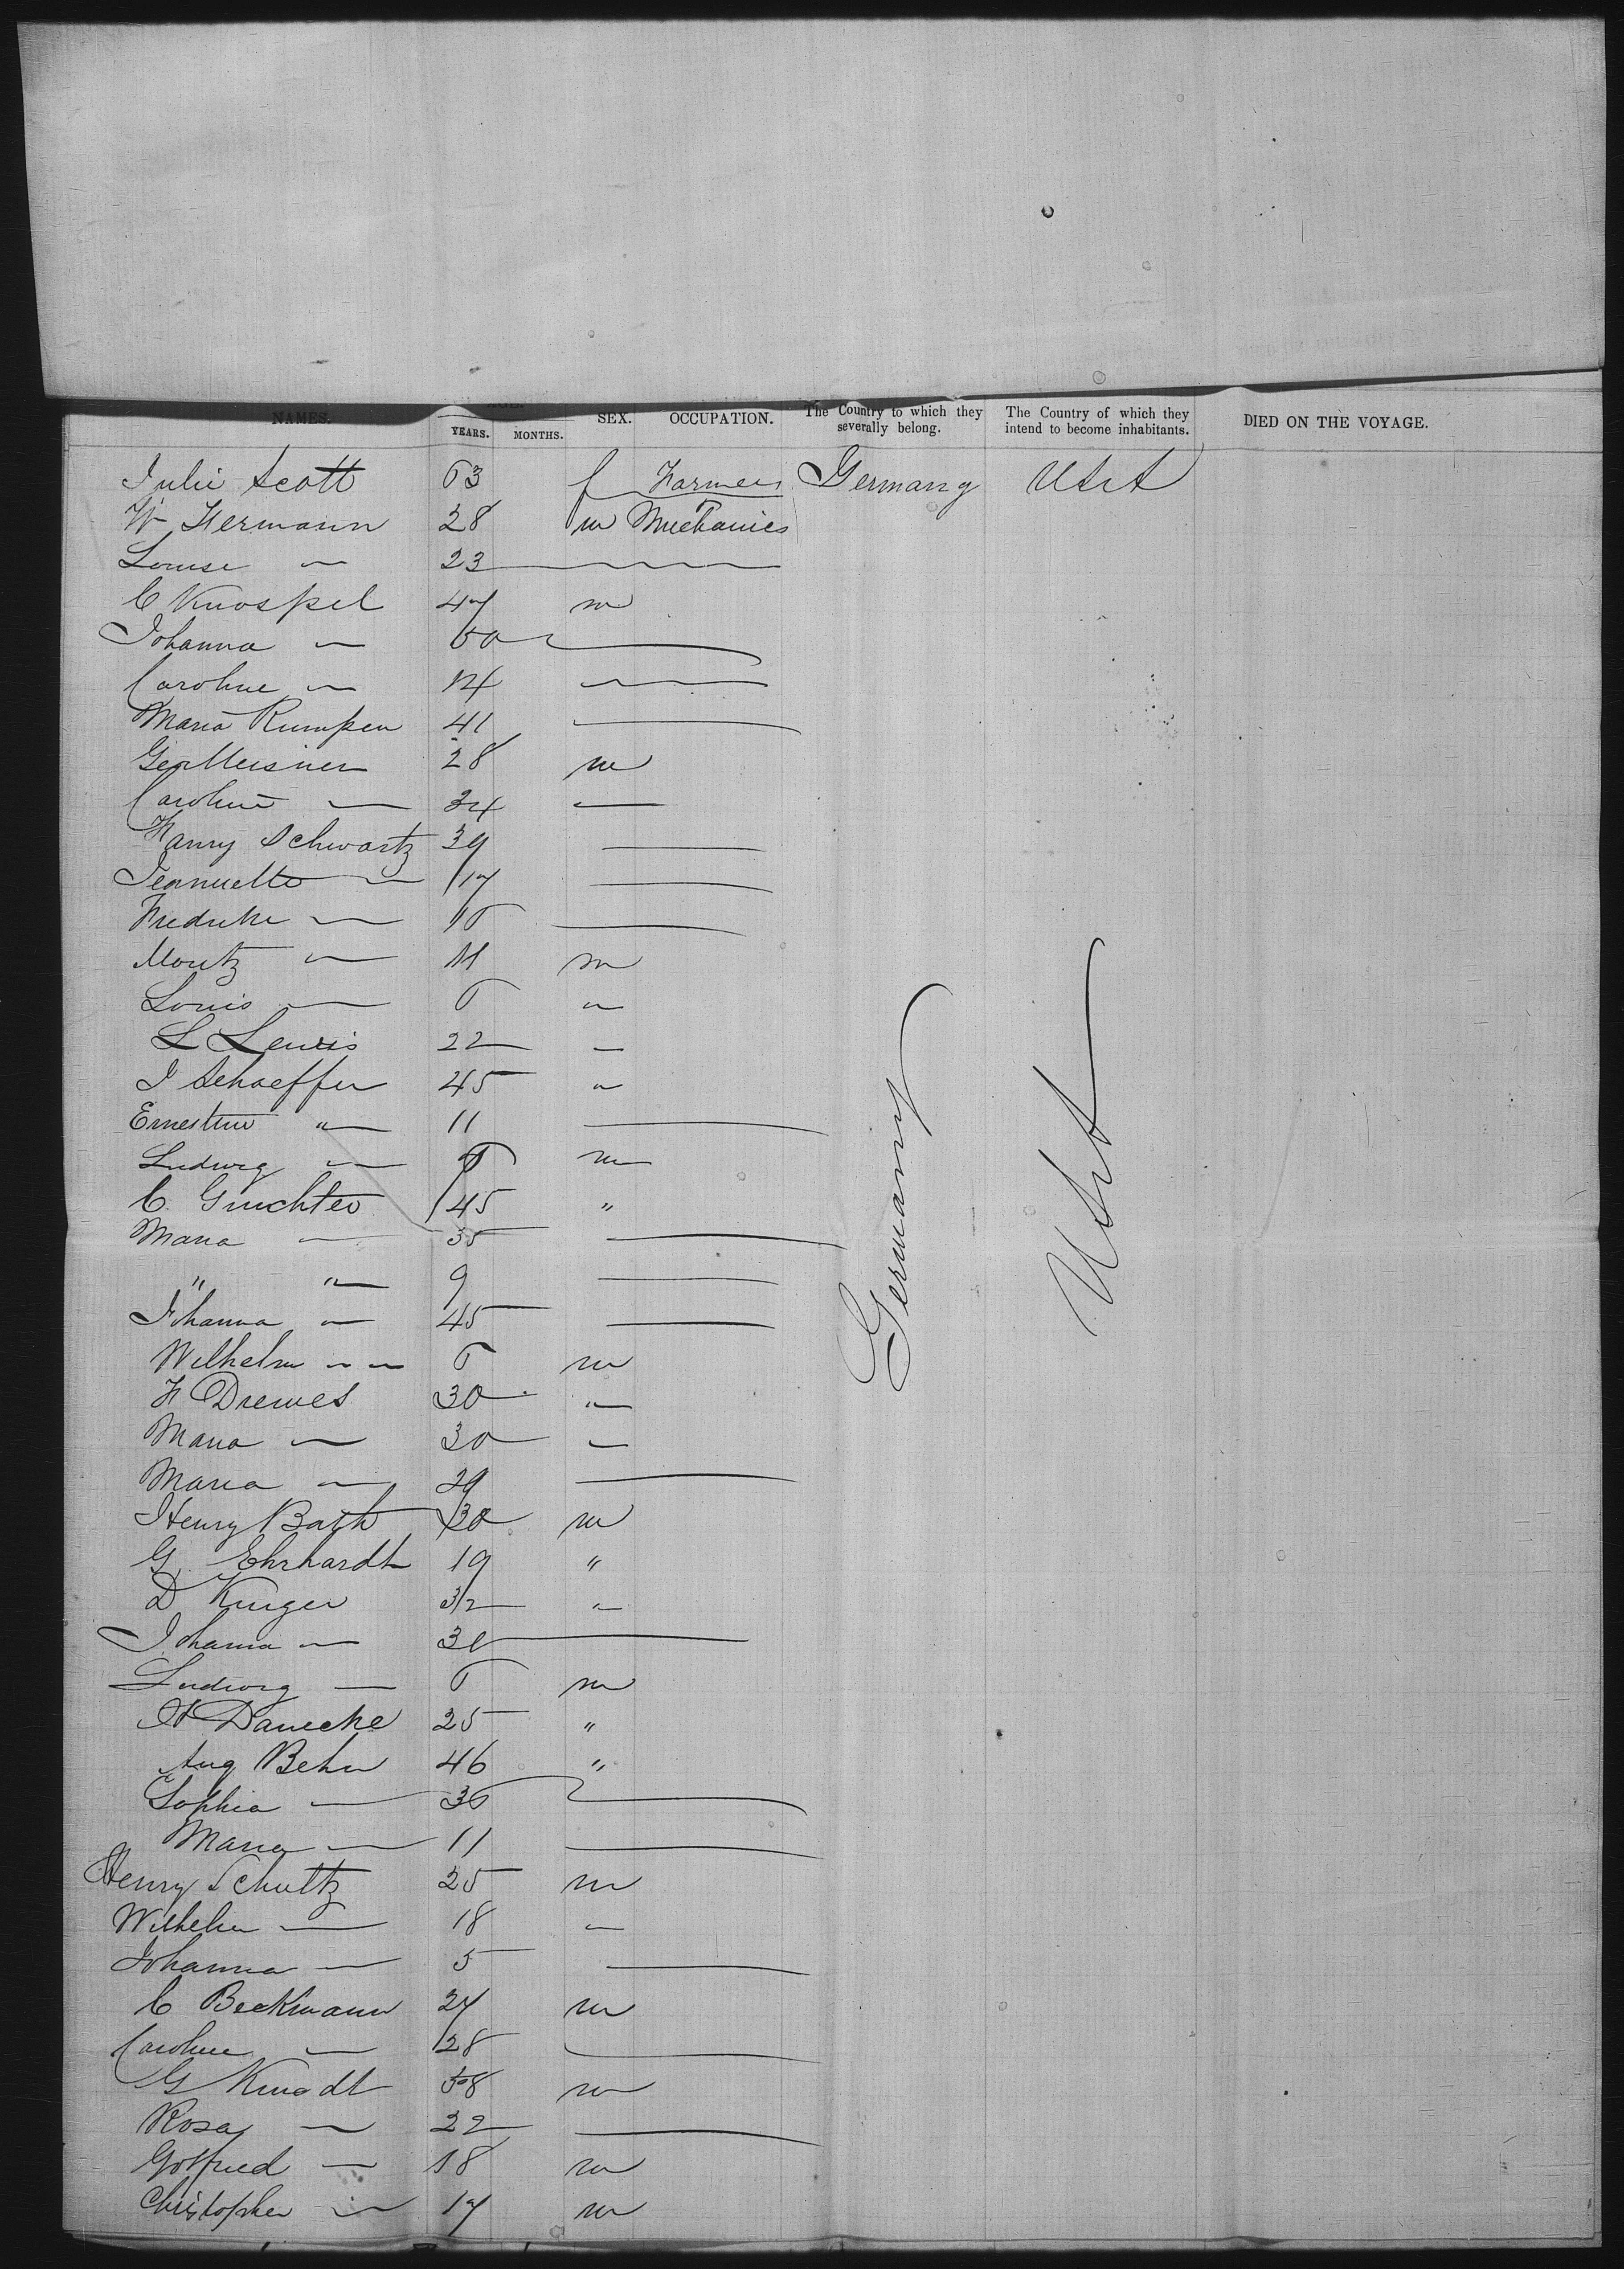 NAMES. AGE. SEX. OCCUPATION. The Country to which they severally belong. The Country of which they intend to become inhabitants. DIED ON THE VOYAGE.
YEARS. MONTHS.
Julie Scott 63 f Farmers Germany USA
W Hermann 28 m Mechanics
Louise — 23
C Knospel 47 m
Johanna — 50
Caroline — 14
Maria Rumpen 41
Geo Meisner 28 m
Caroline — 34
Fanny Schwartz 39
Jeannette — 17
Fredrike — 15
Moritz — 11 m
Louis —
L Lewis 22 —
J Schaeffer 45 "
Ernestine " 11
Ludwig — m
C. 45 "
Maria — 35
" " 9
Johanna — 45
Wilhelm " m
F Drewes 30 "
Maria — 30 —
Maria — 29
Henry Bath 30 m
G Ehrhardt 19 "
D Kruger 32 "
Johanna — 31
Ludwig — m
Danecke 25 "
Aug Behn 46 "
Sophia — 36
Maria — 11
Henry Schultz 25 m
Wilhelm — 18 —
Johanna — 5
C Beckmann 27 m
Caroline — 28
G 58 m
Rosa — 22
Gotfried — 18 m
Christopher — 17 m
Germany
USA